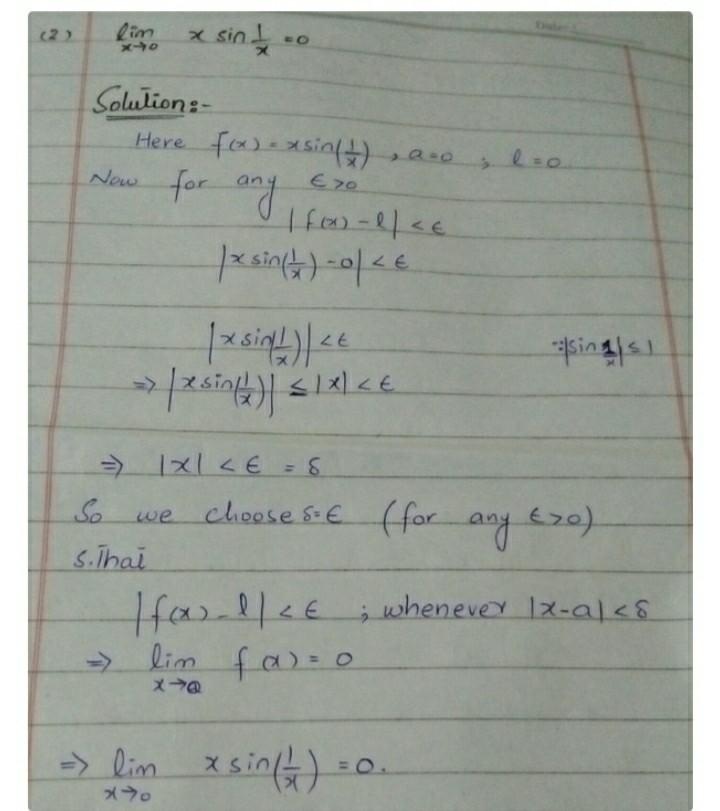 (2) lim x→0 x sin 1/x = 0
Solution:-
Here f(x) = x sin(1/x) , a=0 ; l=0
Now for any ε>0
|f(x) - l| < ε
|x sin(1/x) - 0| < ε
|x sin(1/x)| < ε ∵ |sin 1/x| ≤ 1
=> |x sin(1/x)| ≤ |x| < ε
=> |x| < ε = δ
So we choose δ=ε (for any ε>0)
S.That
|f(x) - l| < ε ; whenever |x-a| < δ
=> lim x→a f(x) = 0
=> lim x→0 x sin(1/x) = 0.